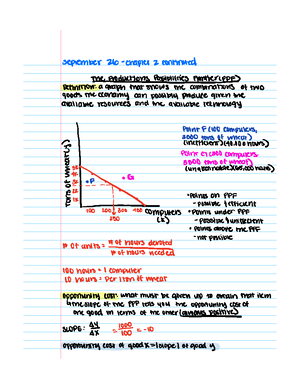 September 26 - chapter 2 continued
The Productions Possibilities Frontier (PPF)
Definition: a graph that shows the combinations of two
goods the economy can possibly produce given the
available resources and the available technology
Point F (100 computers,
3000 tons of wheat)
(inefficient)
Point G
(unattainable)
Tons of wheat (y)
• F
• G
100 200 300 400
250
computers
(x)
• Points on PPF
- possible & efficient
• Points under PPF
- possible & inefficient
• Points above the PPF
- not possible
# of units = # of hours devoted
# of hours needed
100 hours = 1 computer
10 hours = per 1 ton of wheat
opportunity cost: what must be given up to obtain that item
the slope of the PPF tells you the opportunity cost of
one good in terms of the other (always positive)
SLOPE: ΔY = 1000 = -10
ΔX 100
opportunity cost of good x = |slope| of good y